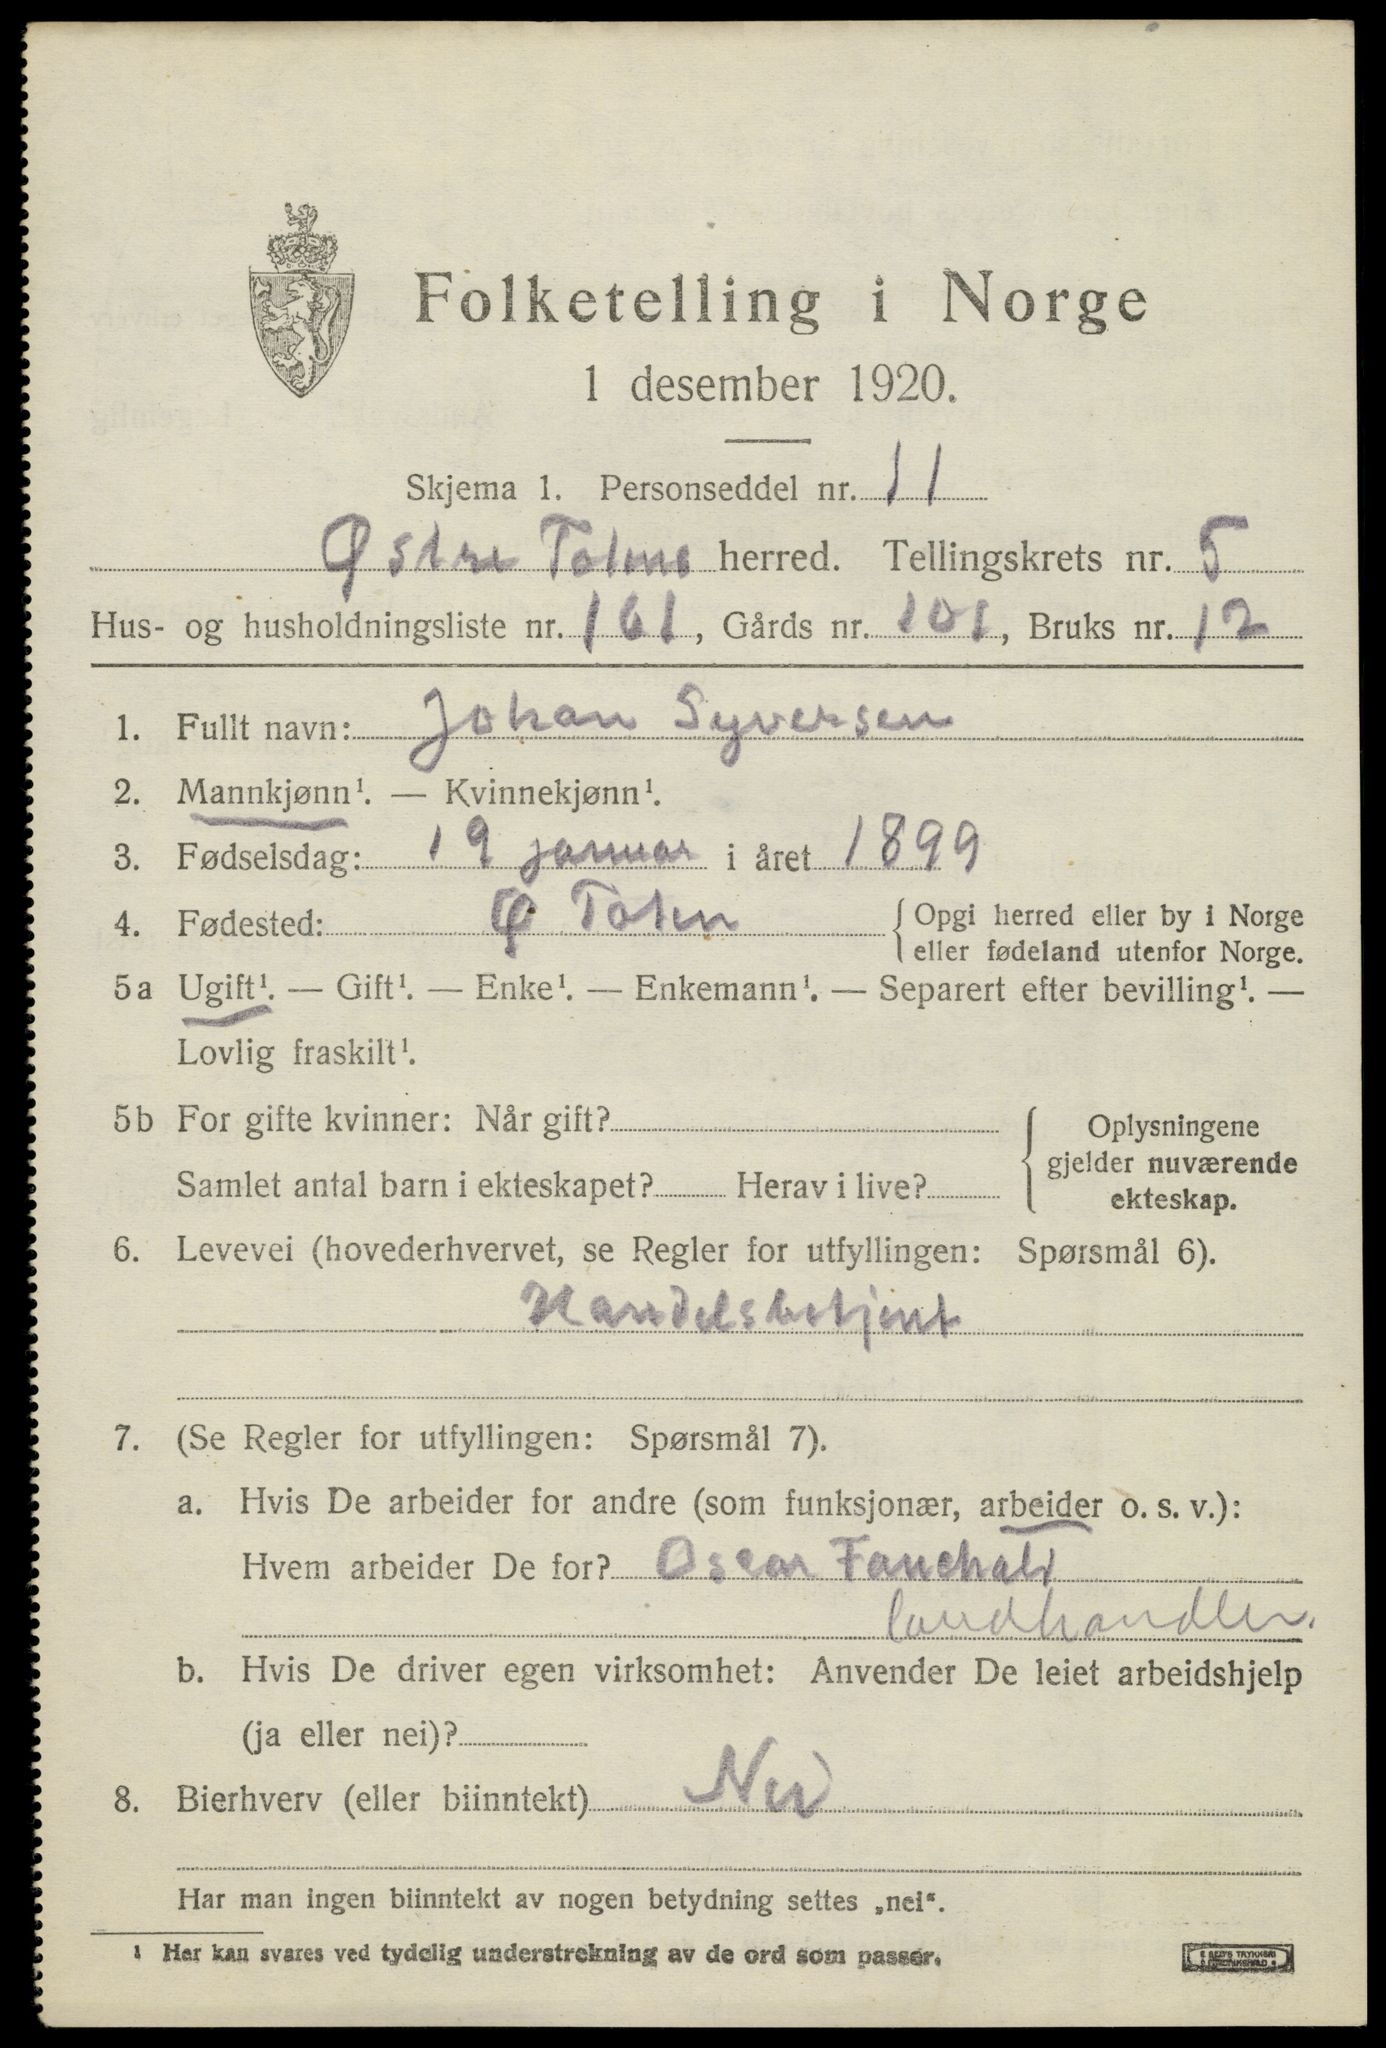 Folketelling i Norge
1 desember 1920.
Skjema 1. Personseddel nr. 11
Østre Totens herred. Tellingskrets nr. 5
Hus- og husholdningsliste nr. 161, Gårds nr. 101, Bruks nr. 12
1. Fullt navn: Johan Syversen
2. Mannkjønn¹. — Kvinnekjønn¹.
3. Fødselsdag: 19 januar i året 1899
4. Fødested: Ø Toten {Opgi herred eller by i Norge
eller fødeland utenfor Norge.
5a Ugift¹. — Gift¹. — Enke¹. — Enkemann¹. — Separert efter bevilling¹. —
Lovlig fraskilt¹.
5b For gifte kvinner: Når gift?
Samlet antal barn i ekteskapet? Herav i live?
Oplysningene
gjelder nuværende
ekteskap.
6. Levevei (hovederhvervet, se Regler for utfyllingen: Spørsmål 6).
Handelsbetjent
7. (Se Regler for utfyllingen: Spørsmål 7).
a. Hvis De arbeider for andre (som funksjonær, arbeider o. s. v.):
Hvem arbeider De for? Oscar Fauchald
landhandler.
b. Hvis De driver egen virksomhet: Anvender De leiet arbeidshjelp
(ja eller nei)?
8. Bierhverv (eller biinntekt) Nei
Har man ingen biinntekt av nogen betydning settes „nei“.
¹ Her kan svares ved tydelig understrekning av de ord som passer.